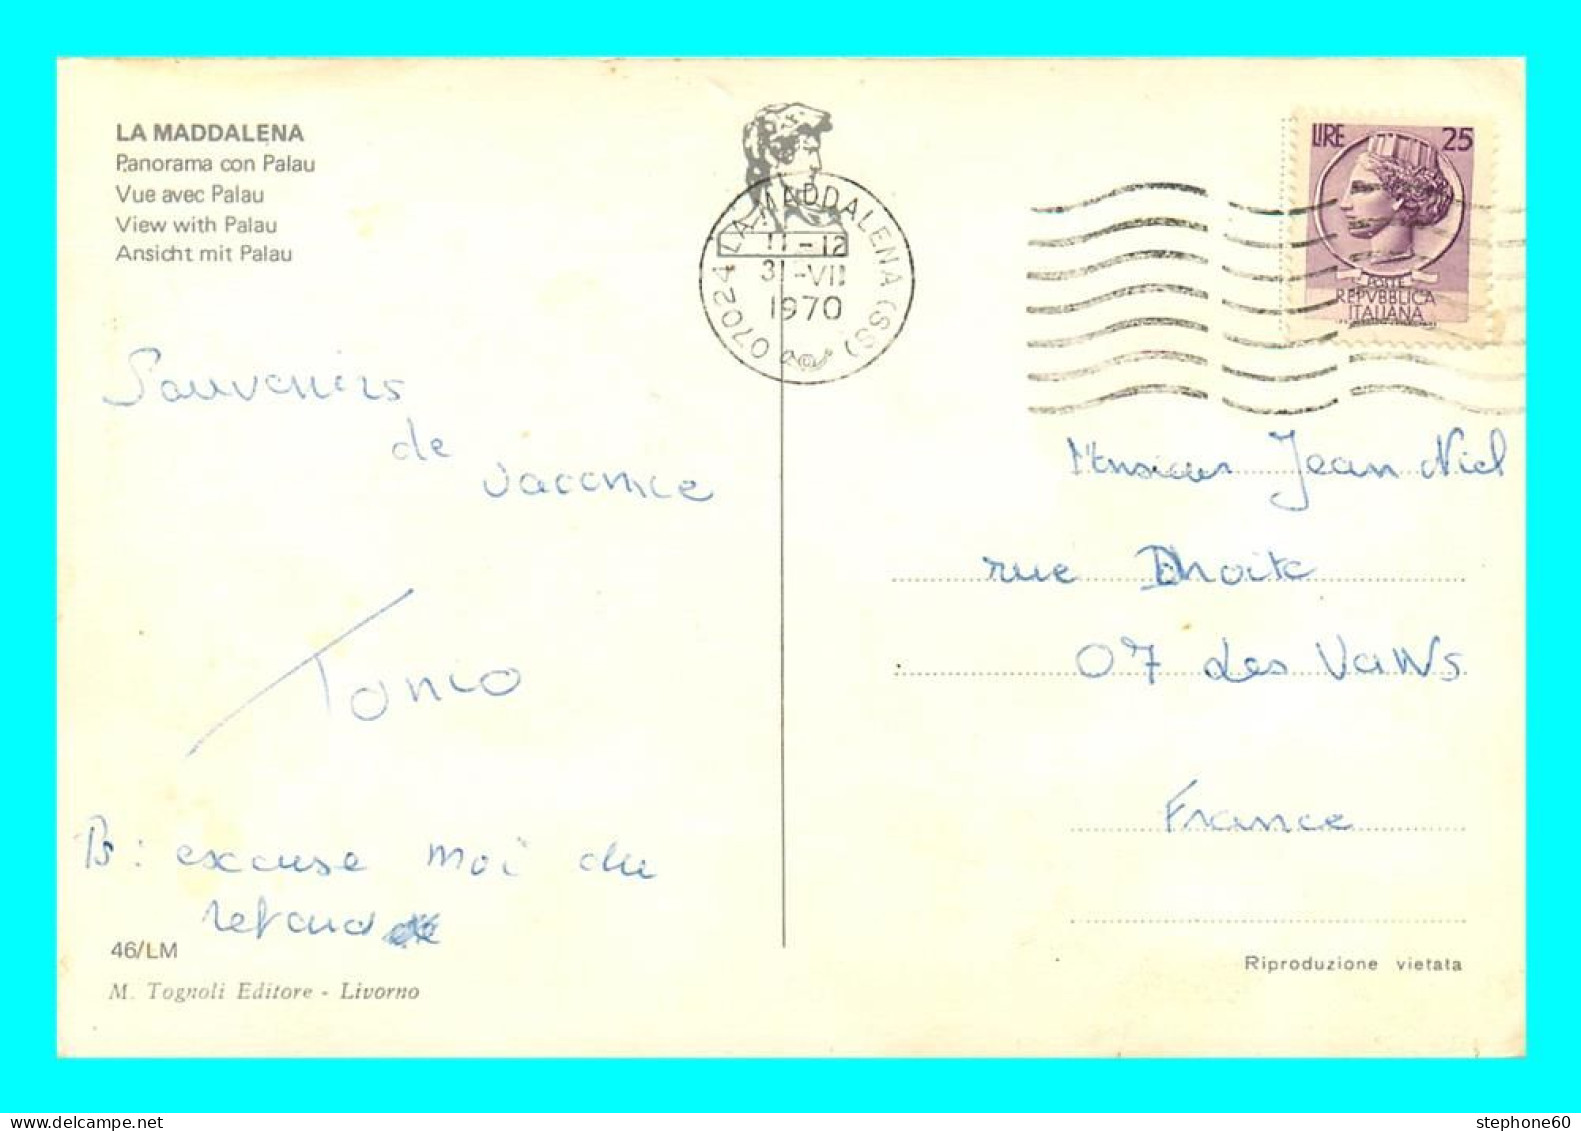 LA MADDALENA
Panorama con Palau
Vue avec Palau
View with Palau
Ansicht mit Palau
07024 LA MADDALENA (SS)
11-12
31-VII
1970
LIRE 25
POSTE
REPVBBLICA
ITALIANA
Souvenirs
de
vacance
Tonio
Ps : excuse moi du
retard
46/LM
M. Tognoli Editore - Livorno
Monsieur Jean Niel
rue Droite
07 Les Vans
France
Riproduzione vietata
stephone60